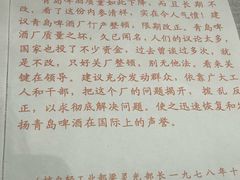 青岛啤酒质量如此下降,而且长期不
改,看了这份内参清样,实在令人气愤!建
议青岛啤酒厂行声整顿,限期改正。青岛啤
酒厂质量之坏,久已闻名,人们的议论太多,
国家也投了不少资金,过去曾谈过多次,就
是不改,只好关厂整顿,别无他法,看来关
键在领导。建议充分发动群众,依靠广大工
人和干部,把这个厂的问题揭开,拨乱反
正,以求彻底解决问题,使之迅速恢复和发
扬青岛啤酒在国际上的声誉。
工业部梁灵光部长一九七八年十